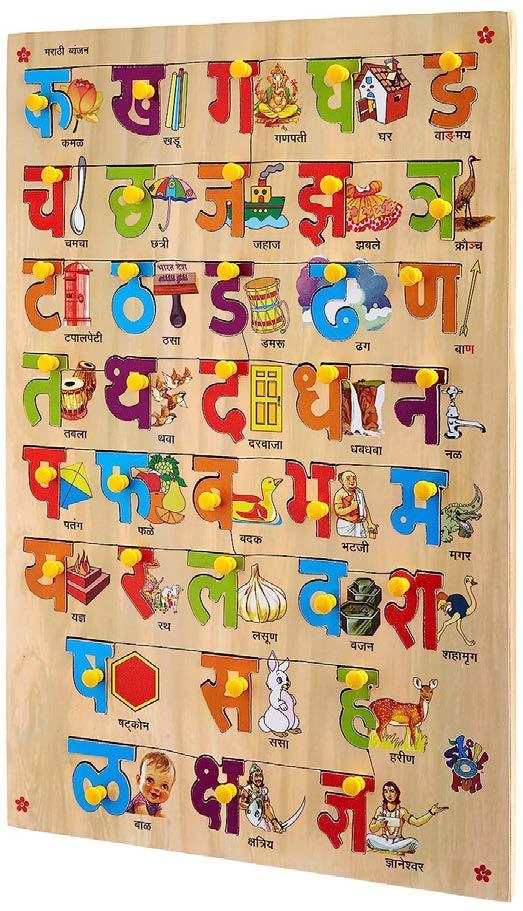 मराठी व्यंजन
क ख ग घ ङ
कमळ खडू गणपती घर वाङ्मय
च छ ज झ ञ
चमचा छत्री जहाज झबले क्रौञ्च
ट ठ ड ढ ण
भारत देश
टपालपेटी ठसा डमरू ढग बाण
त थ द ध न
तबला थवा दरवाजा धबधबा नळ
प फ ब भ म
पतंग फळे बदक भटजी मगर
य र ल व श
यज्ञ रथ लसूण वजन शहामृग
ष स ह
षट्कोन ससा हरीण
ळ क्ष ज्ञ
बाळ क्षत्रिय ज्ञानेश्वर